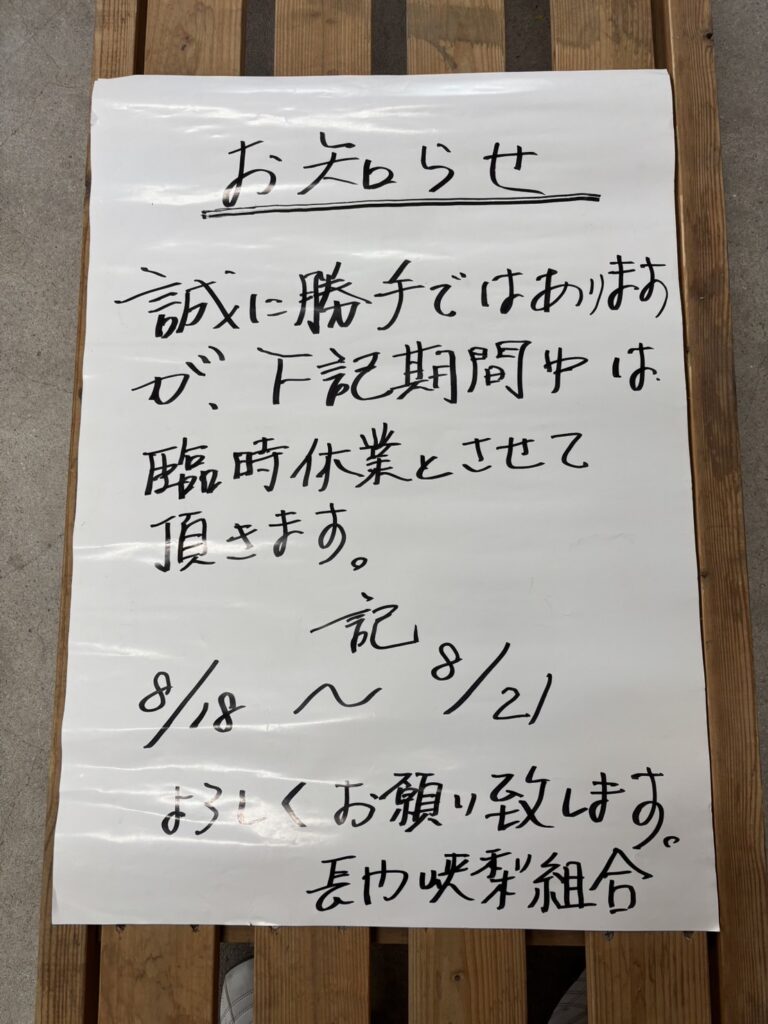 お知らせ
誠に勝手ではあります
が、下記期間中は
臨時休業とさせて
頂きます。
記
8/18 〜 8/21
よろしくお願い致します。
長門峡梨組合